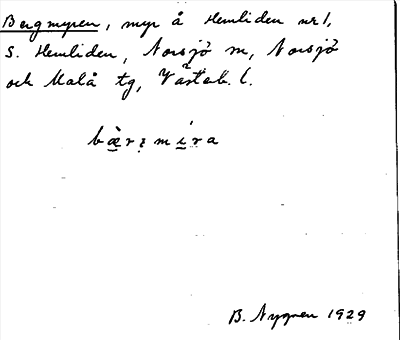 Bergmyren, myr å Hemliden nr 1,
S. Hemliden, Norsjö sn, Norsjö
och Malå tg, Västerb. l.
bæ̀rɩmíra
B. Nygren 1929